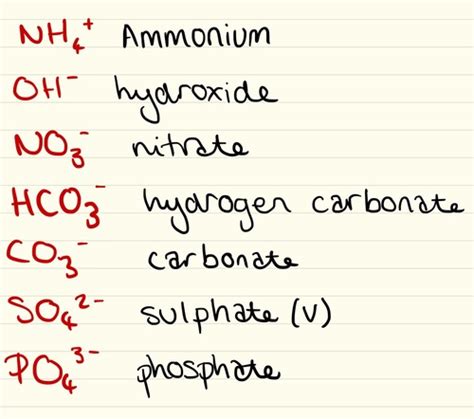 NH₄⁺ Ammonium
OH⁻ hydroxide
NO₃⁻ nitrate
HCO₃⁻ hydrogen carbonate
CO₃⁻ carbonate
SO₄²⁻ sulphate (V)
PO₄³⁻ phosphate